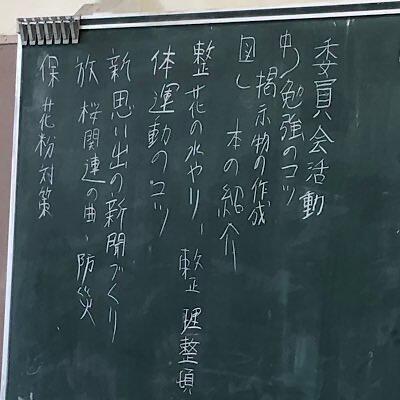 委員会活動
中 勉強のコツ
掲示物の作成
図し 本の紹介
整 花の水やり、整理整頓
体 運動のコツ
新 思い出の新聞づくり
放 桜関連の曲、防災
保 花粉対策